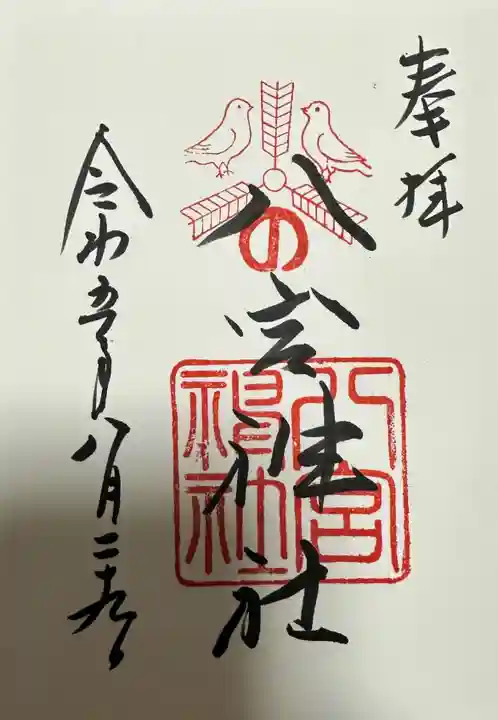 奉拝
八の宮神社
八宮神社
令和五年八月二十九日